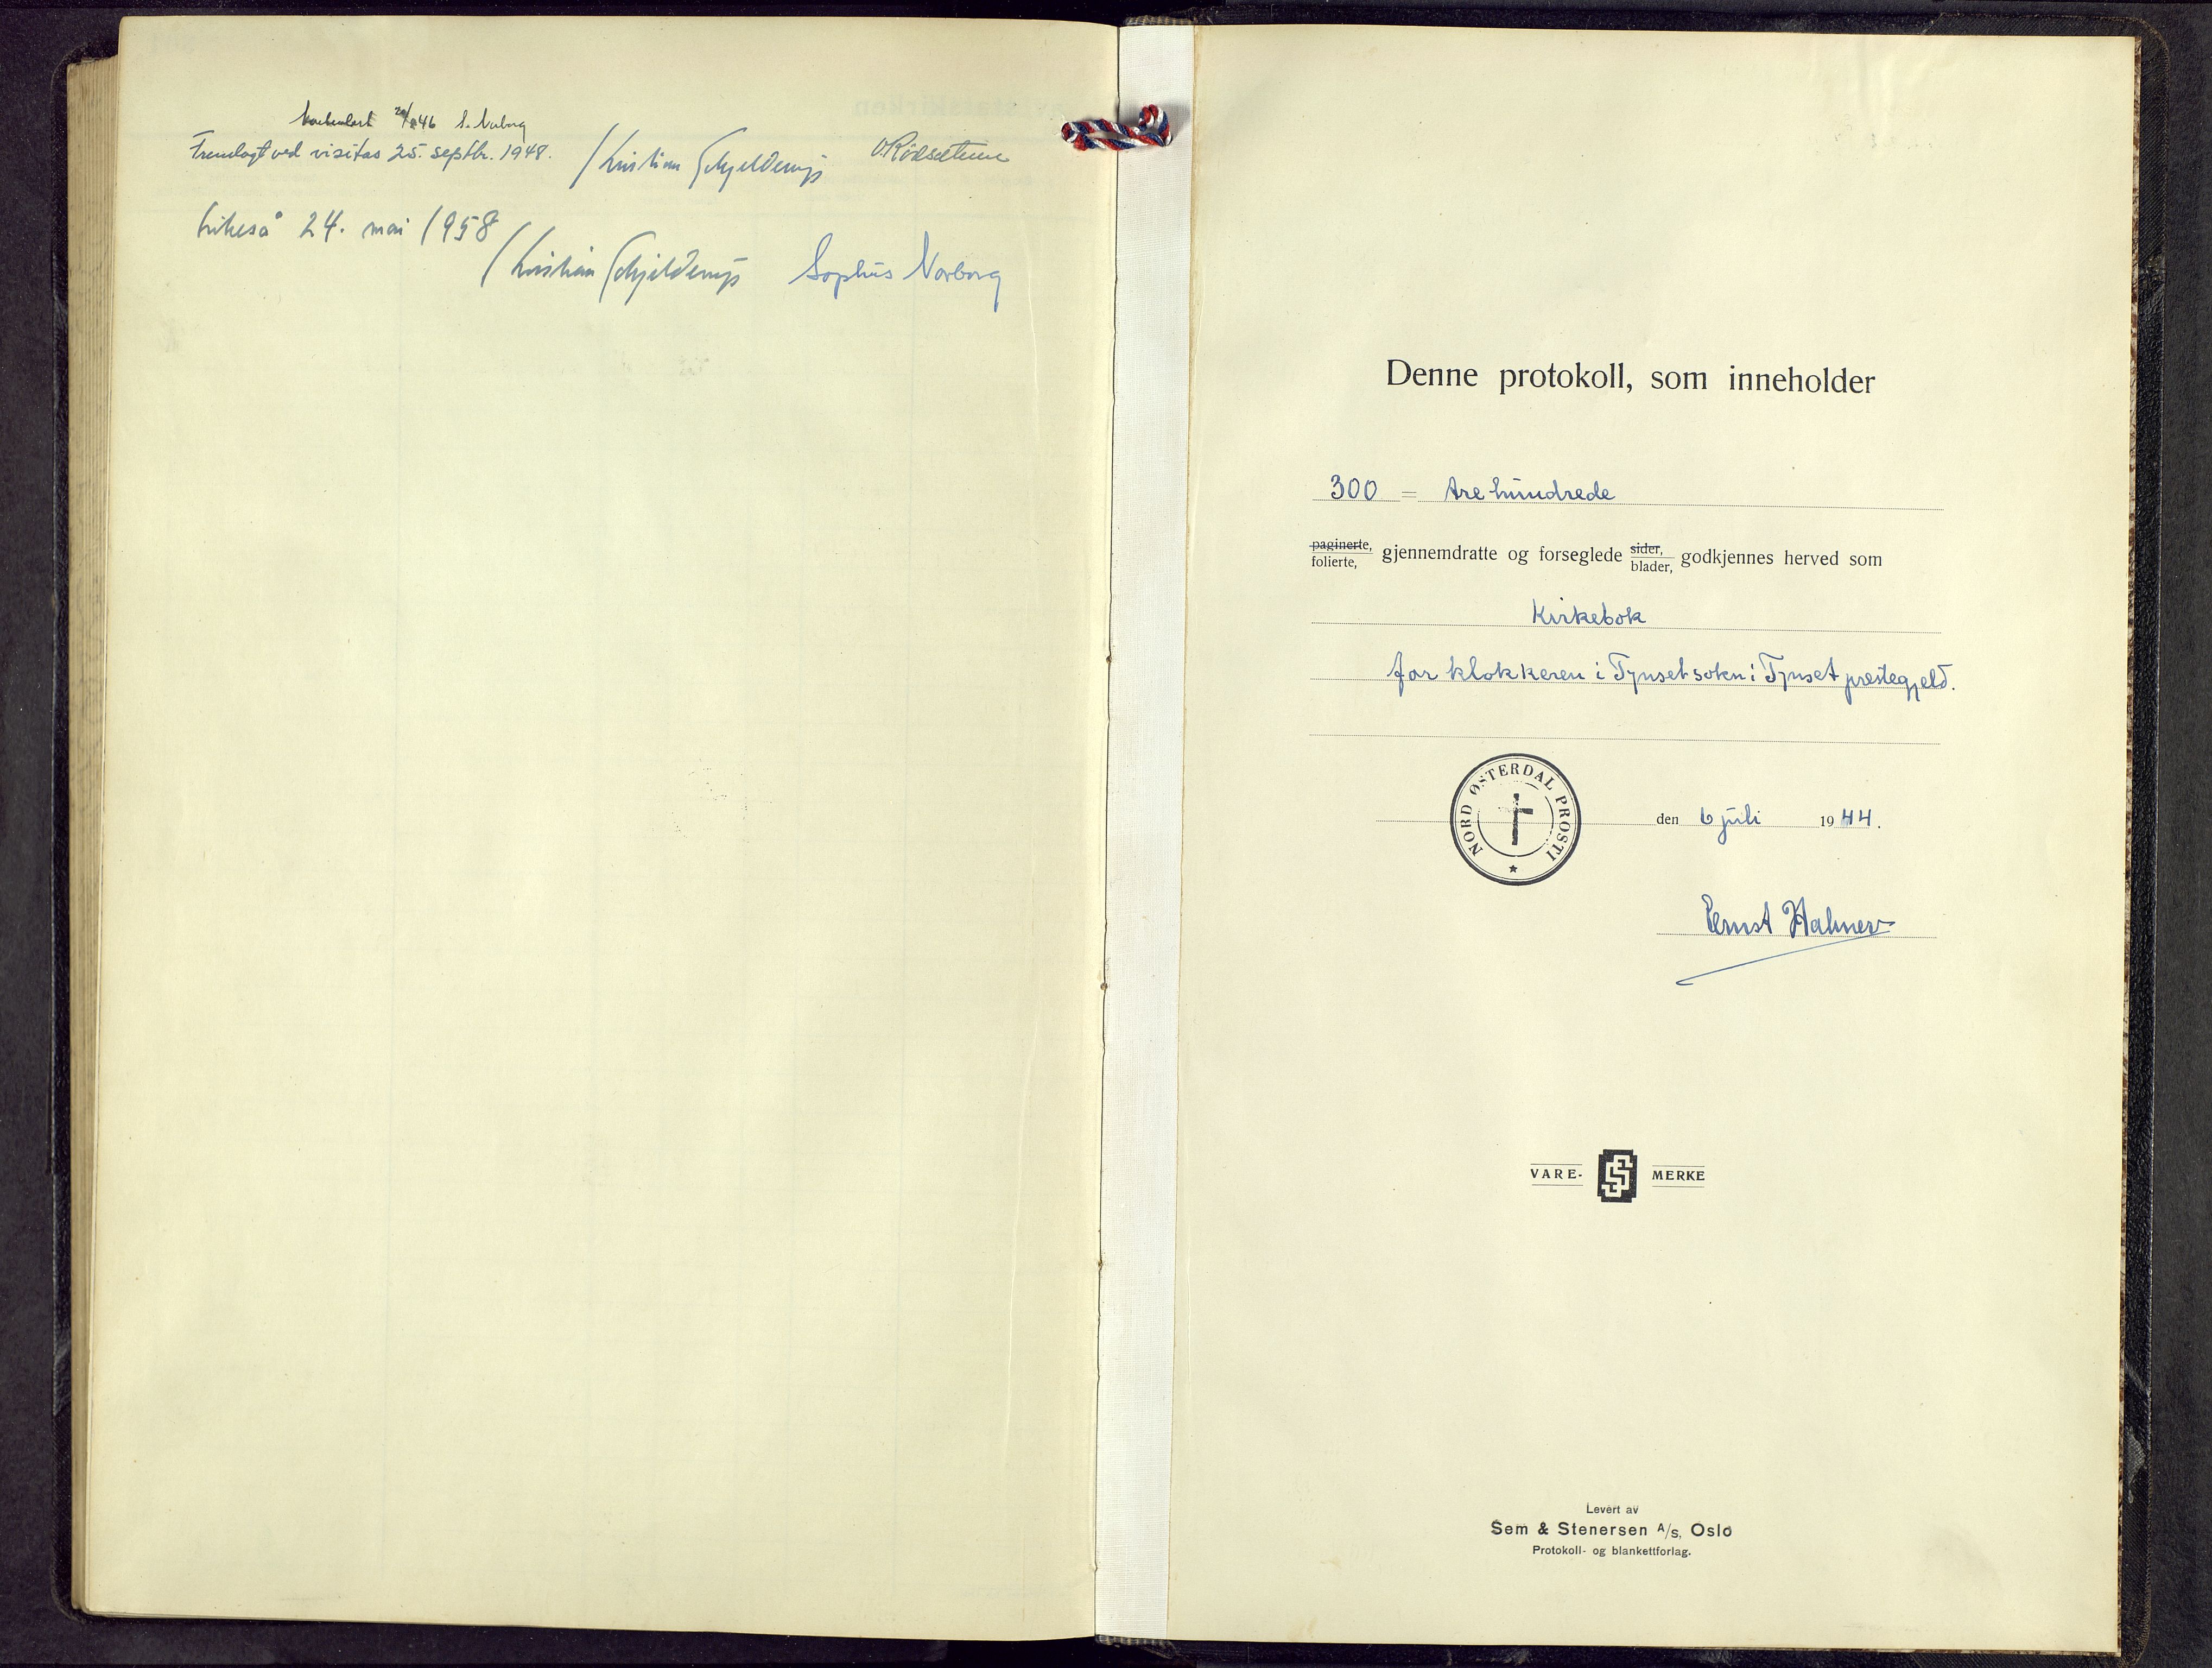 20/2 46 S. Norborg
Fremlagt ved visitas 25. septbr. 1948. Kristian Schjelderup O. Rödsætume
Likeså 24. mai 1958
Kristian Schjelderup Sophus Norborg
Denne protokoll, som inneholder
300 = tre hundrede
paginerte, folierte, gjennemdratte og forseglede sider, blader, godkjennes herved som
Kirkebok
for klokkeren i Tynset sokn i Tynset prestegjeld.
NORD ØSTERDAL PROSTI
den 6 juli 1944.
Ernst Halmer
VARE- MERKE
Levert av
Sem & Stenersen A/s, Oslo
Protokoll- og blankettforlag.